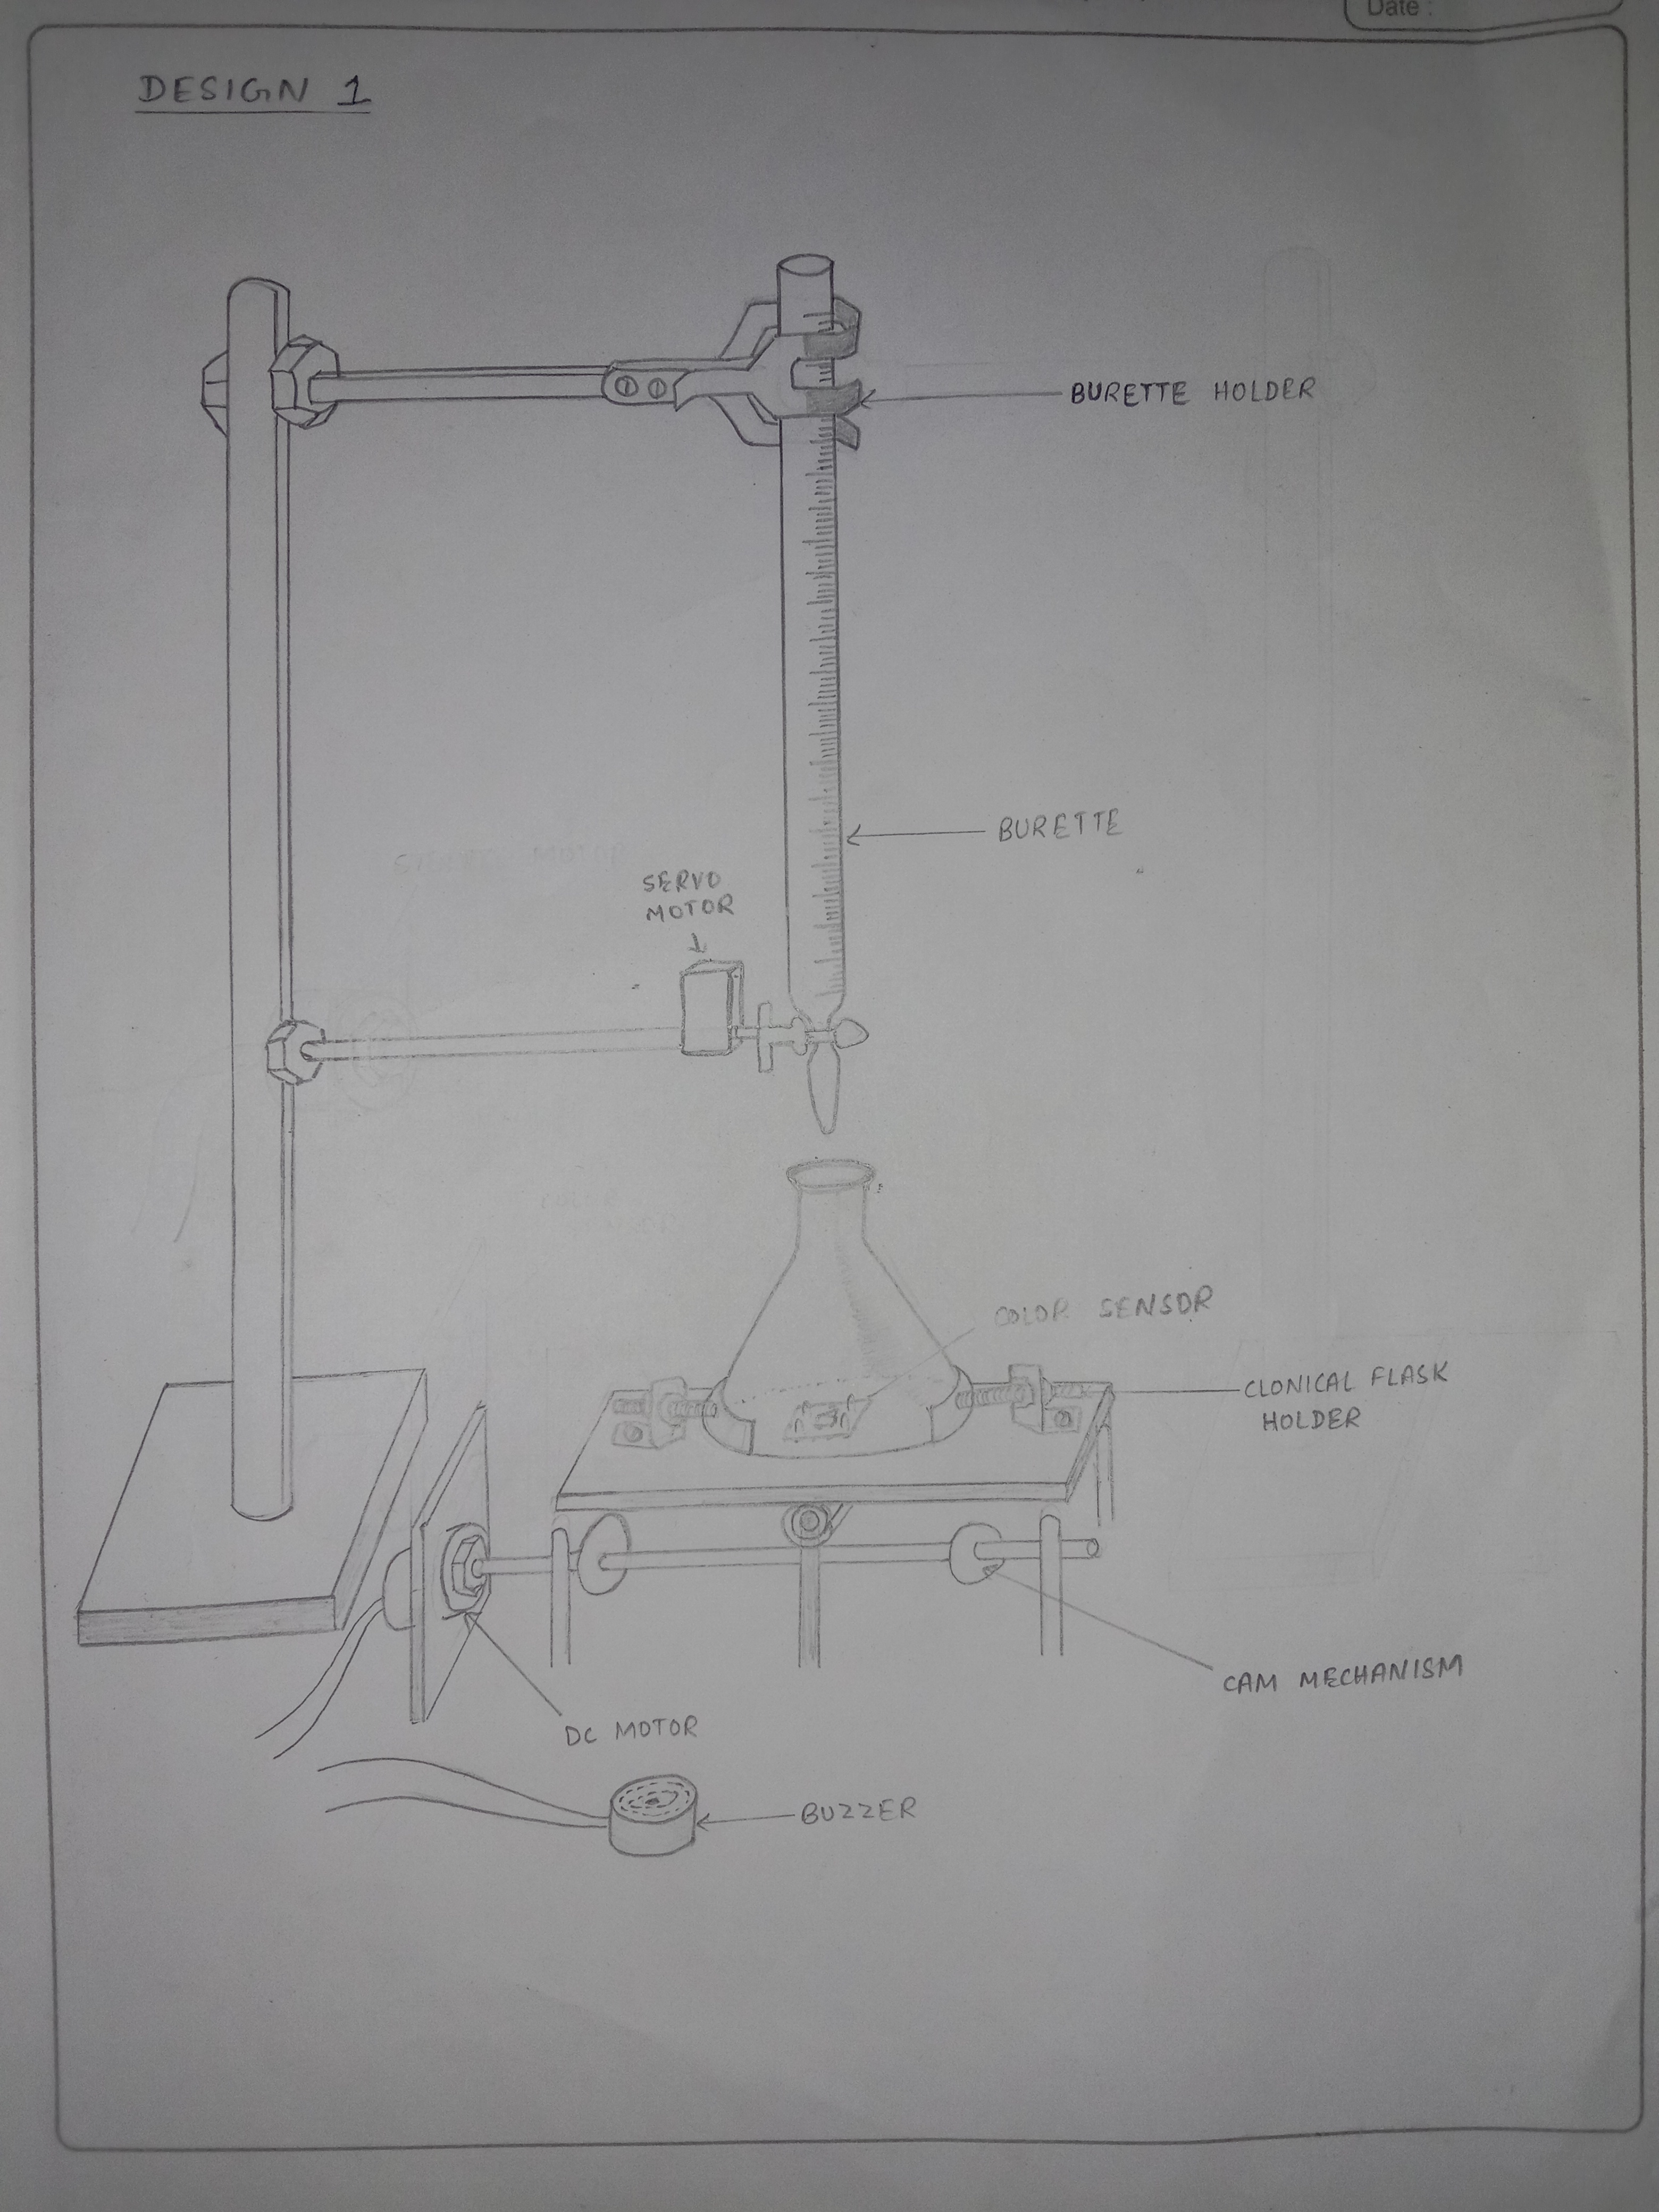 Date :
DESIGN 1
BURETTE HOLDER
BURETTE
SERVO
MOTOR
COLOR SENSOR
CLONICAL FLASK
HOLDER
CAM MECHANISM
DC MOTOR
BUZZER